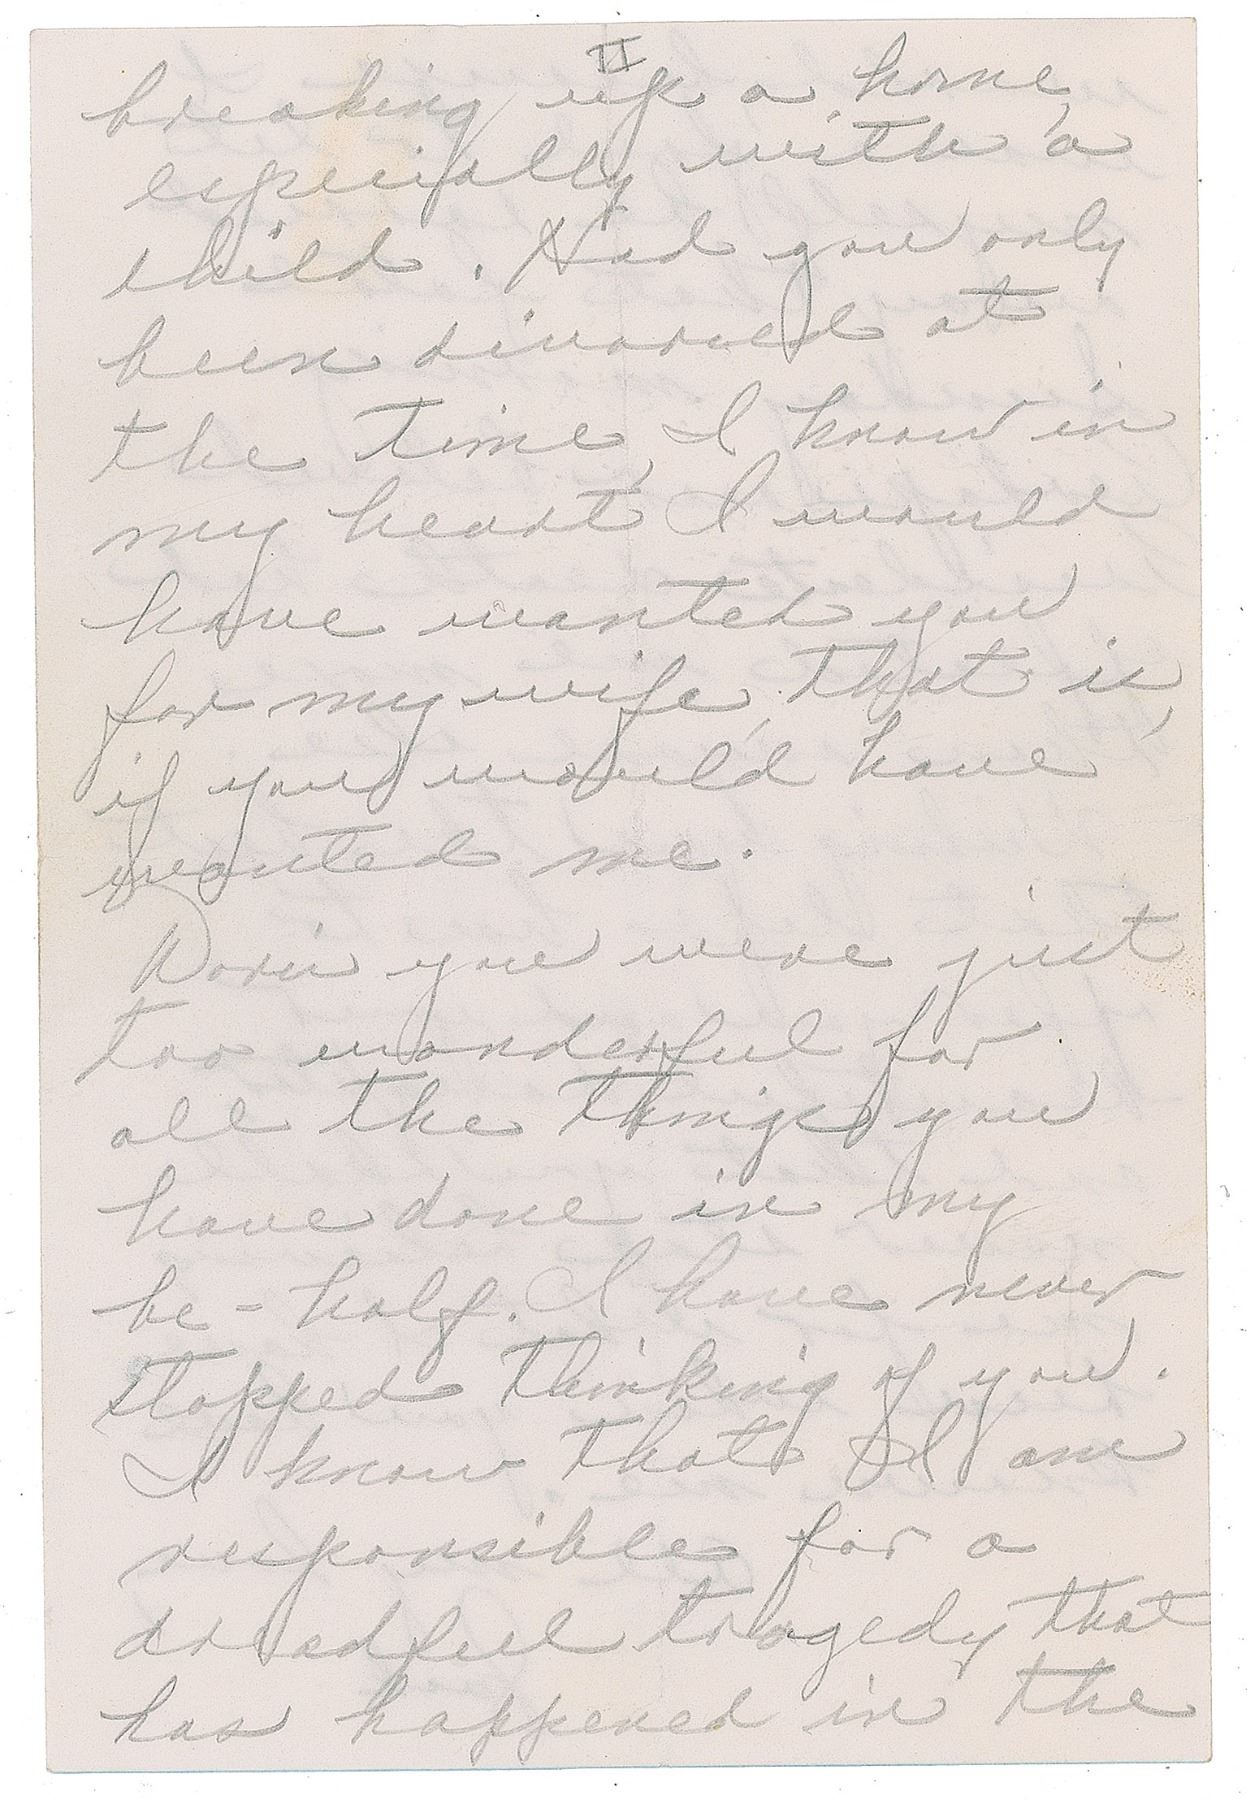 II
breaking up a home,
especially with a
child. Had you only
been divorced at
the time, I know in
my heart I would
have wanted you
for my wife, that is,
if you would have
wanted me.
Doris you were just
too wonderful for
all the things you
have done in my
be-half. I have never
stopped thinking of you.
I know that I am
responsible for a
dreadful tragedy that
has happened in the